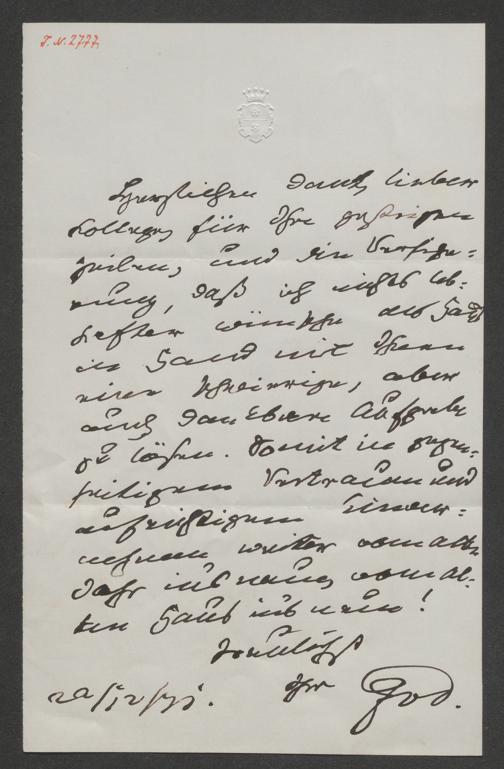 I. N. 2777.
Herzlichen Dank, lieber
Kollege, für Ihre gestrigen
Zeilen, und die Versiche-
rung, daß ich nichts leb-
hafter wünsche als Hand
in Hand mit Ihnen
eine schwierige, aber
auch dankbare Aufgabe
zu lösen. Somit in gegen-
seitigem Vertrauen und
aufrichtigem Einver-
nehmen weiter vom alten
Jahr ins neue, vom al-
ten Haus ins neue!
Treulichst
Ihr